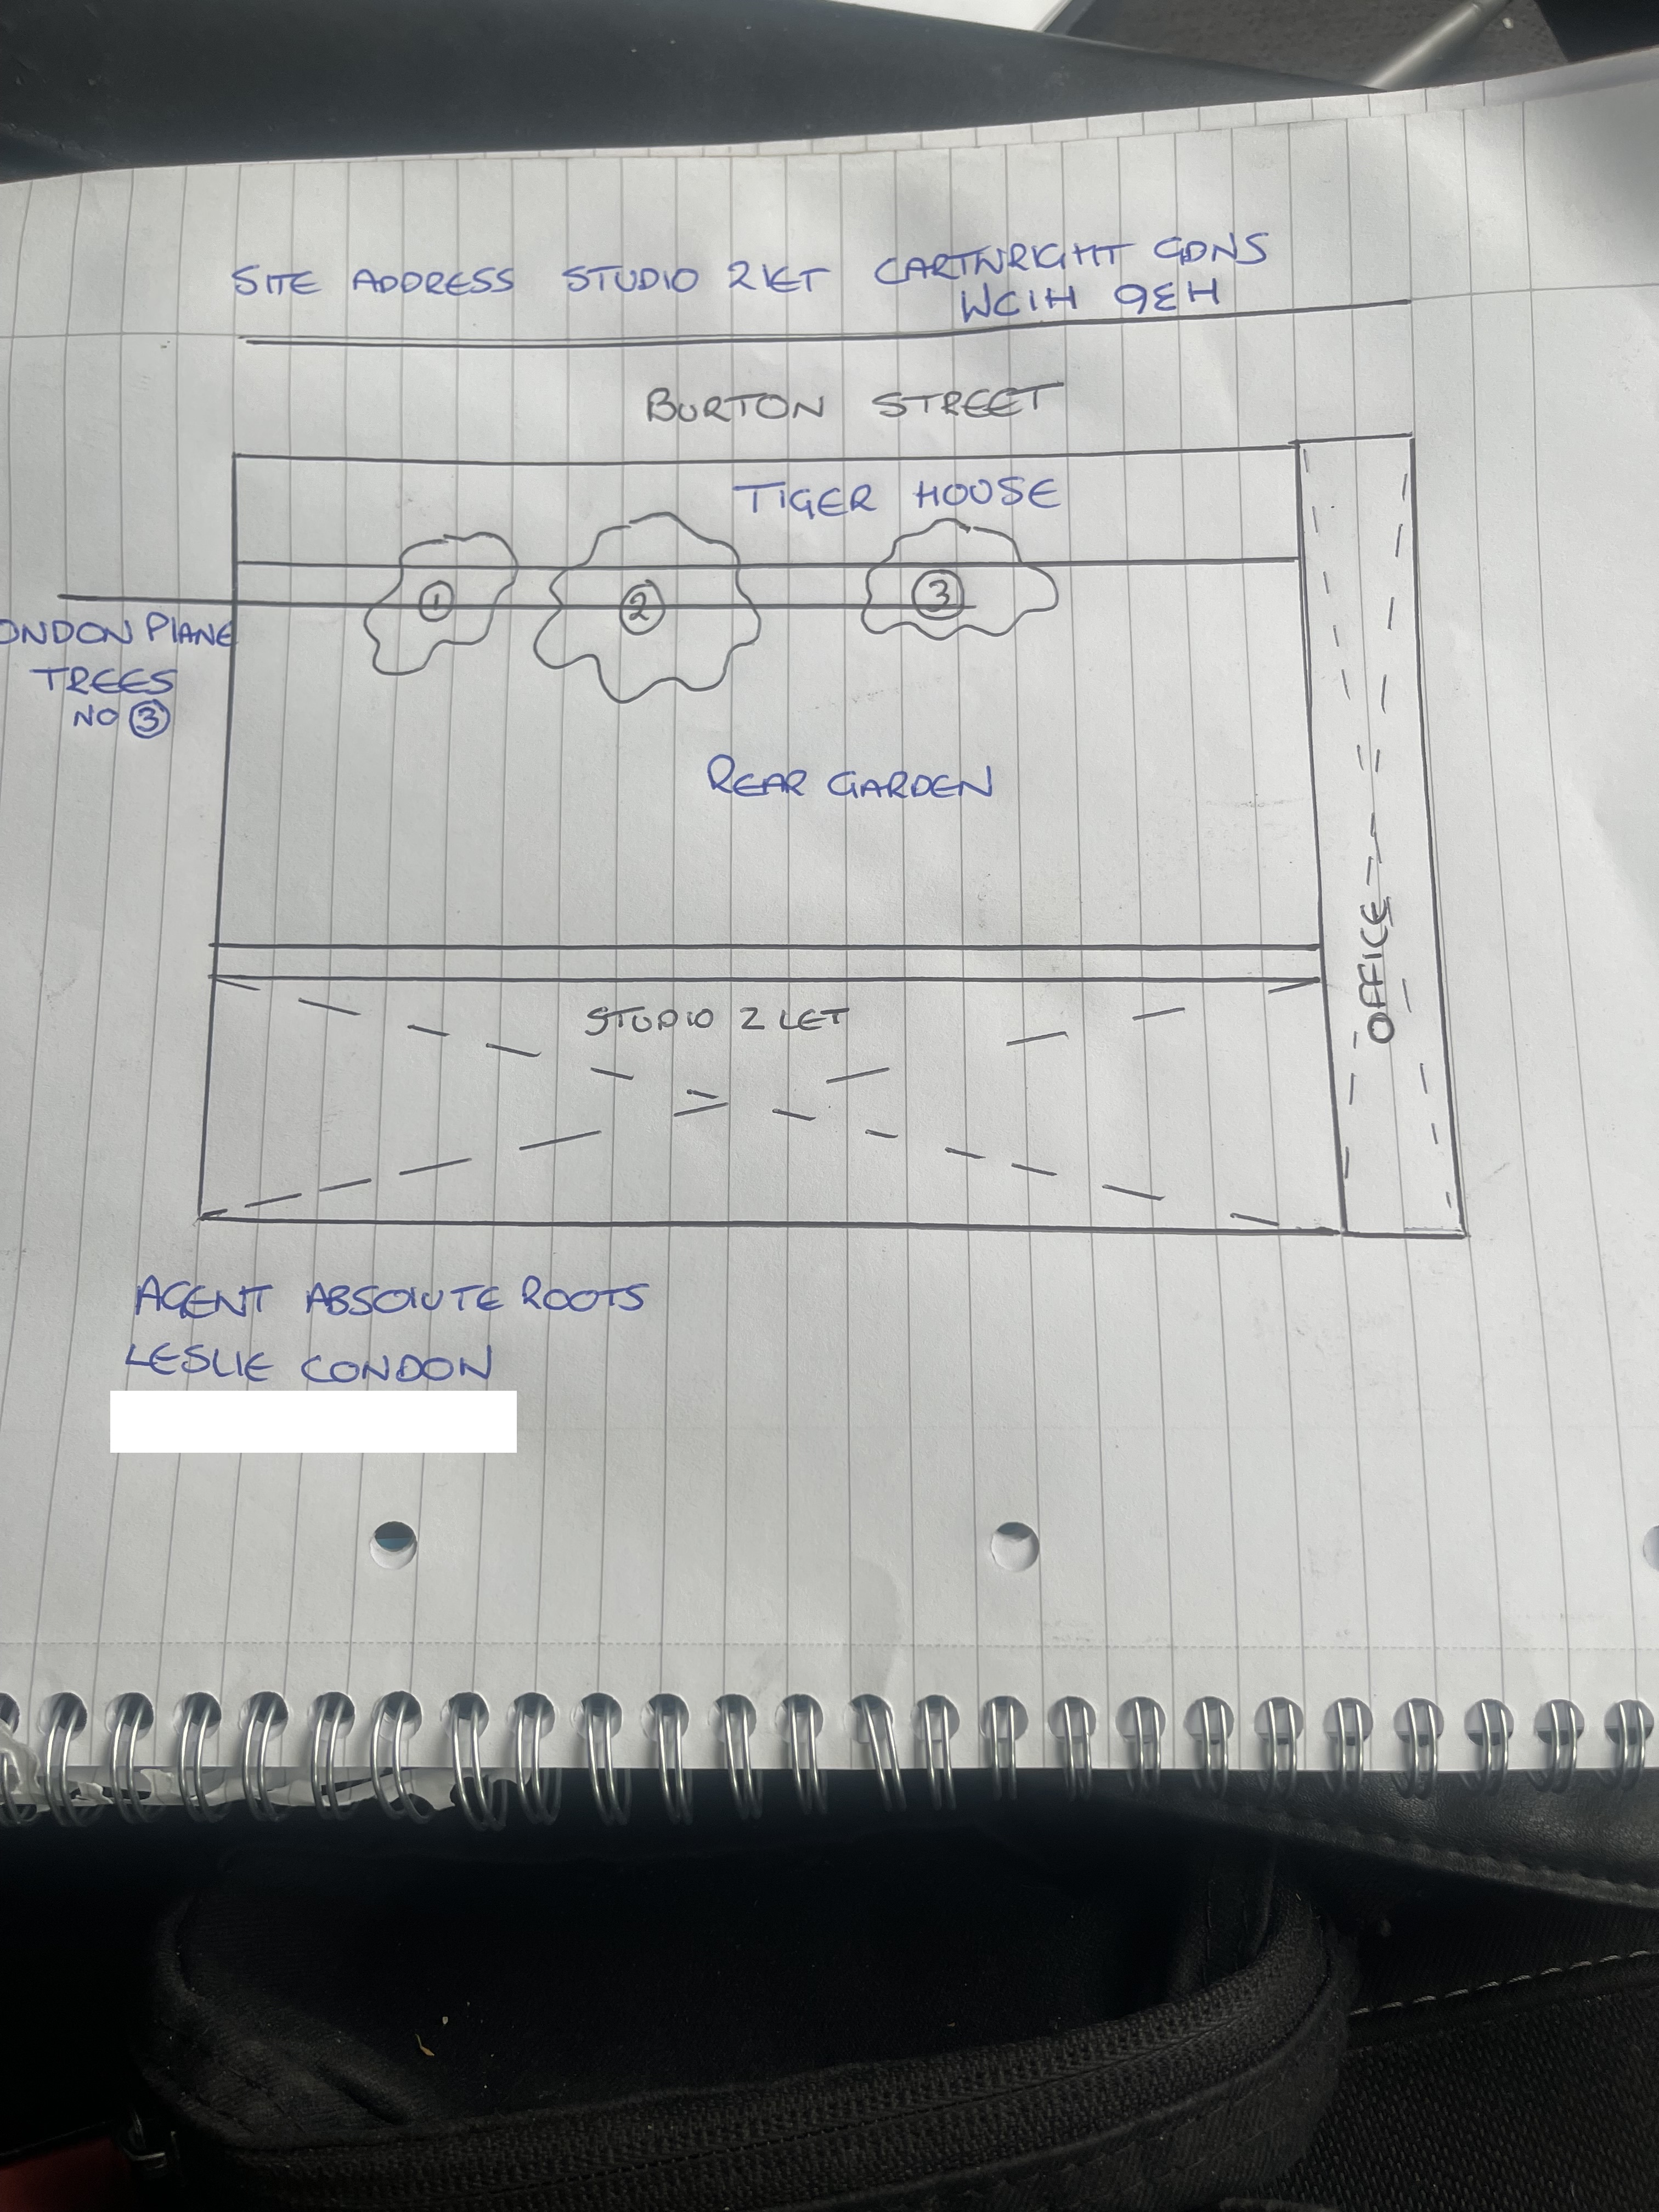 SITE ADDRESS STUDIO 2LET CARTWRIGHT GDNS
WC1H 9EH
BURTON STREET
TIGER HOUSE
1 2 3
ONDON PLANE
TREES
NO 3
REAR GARDEN
OFFICE
STUDIO 2 LET
AGENT ABSOLUTE ROOTS
LESLIE CONDON